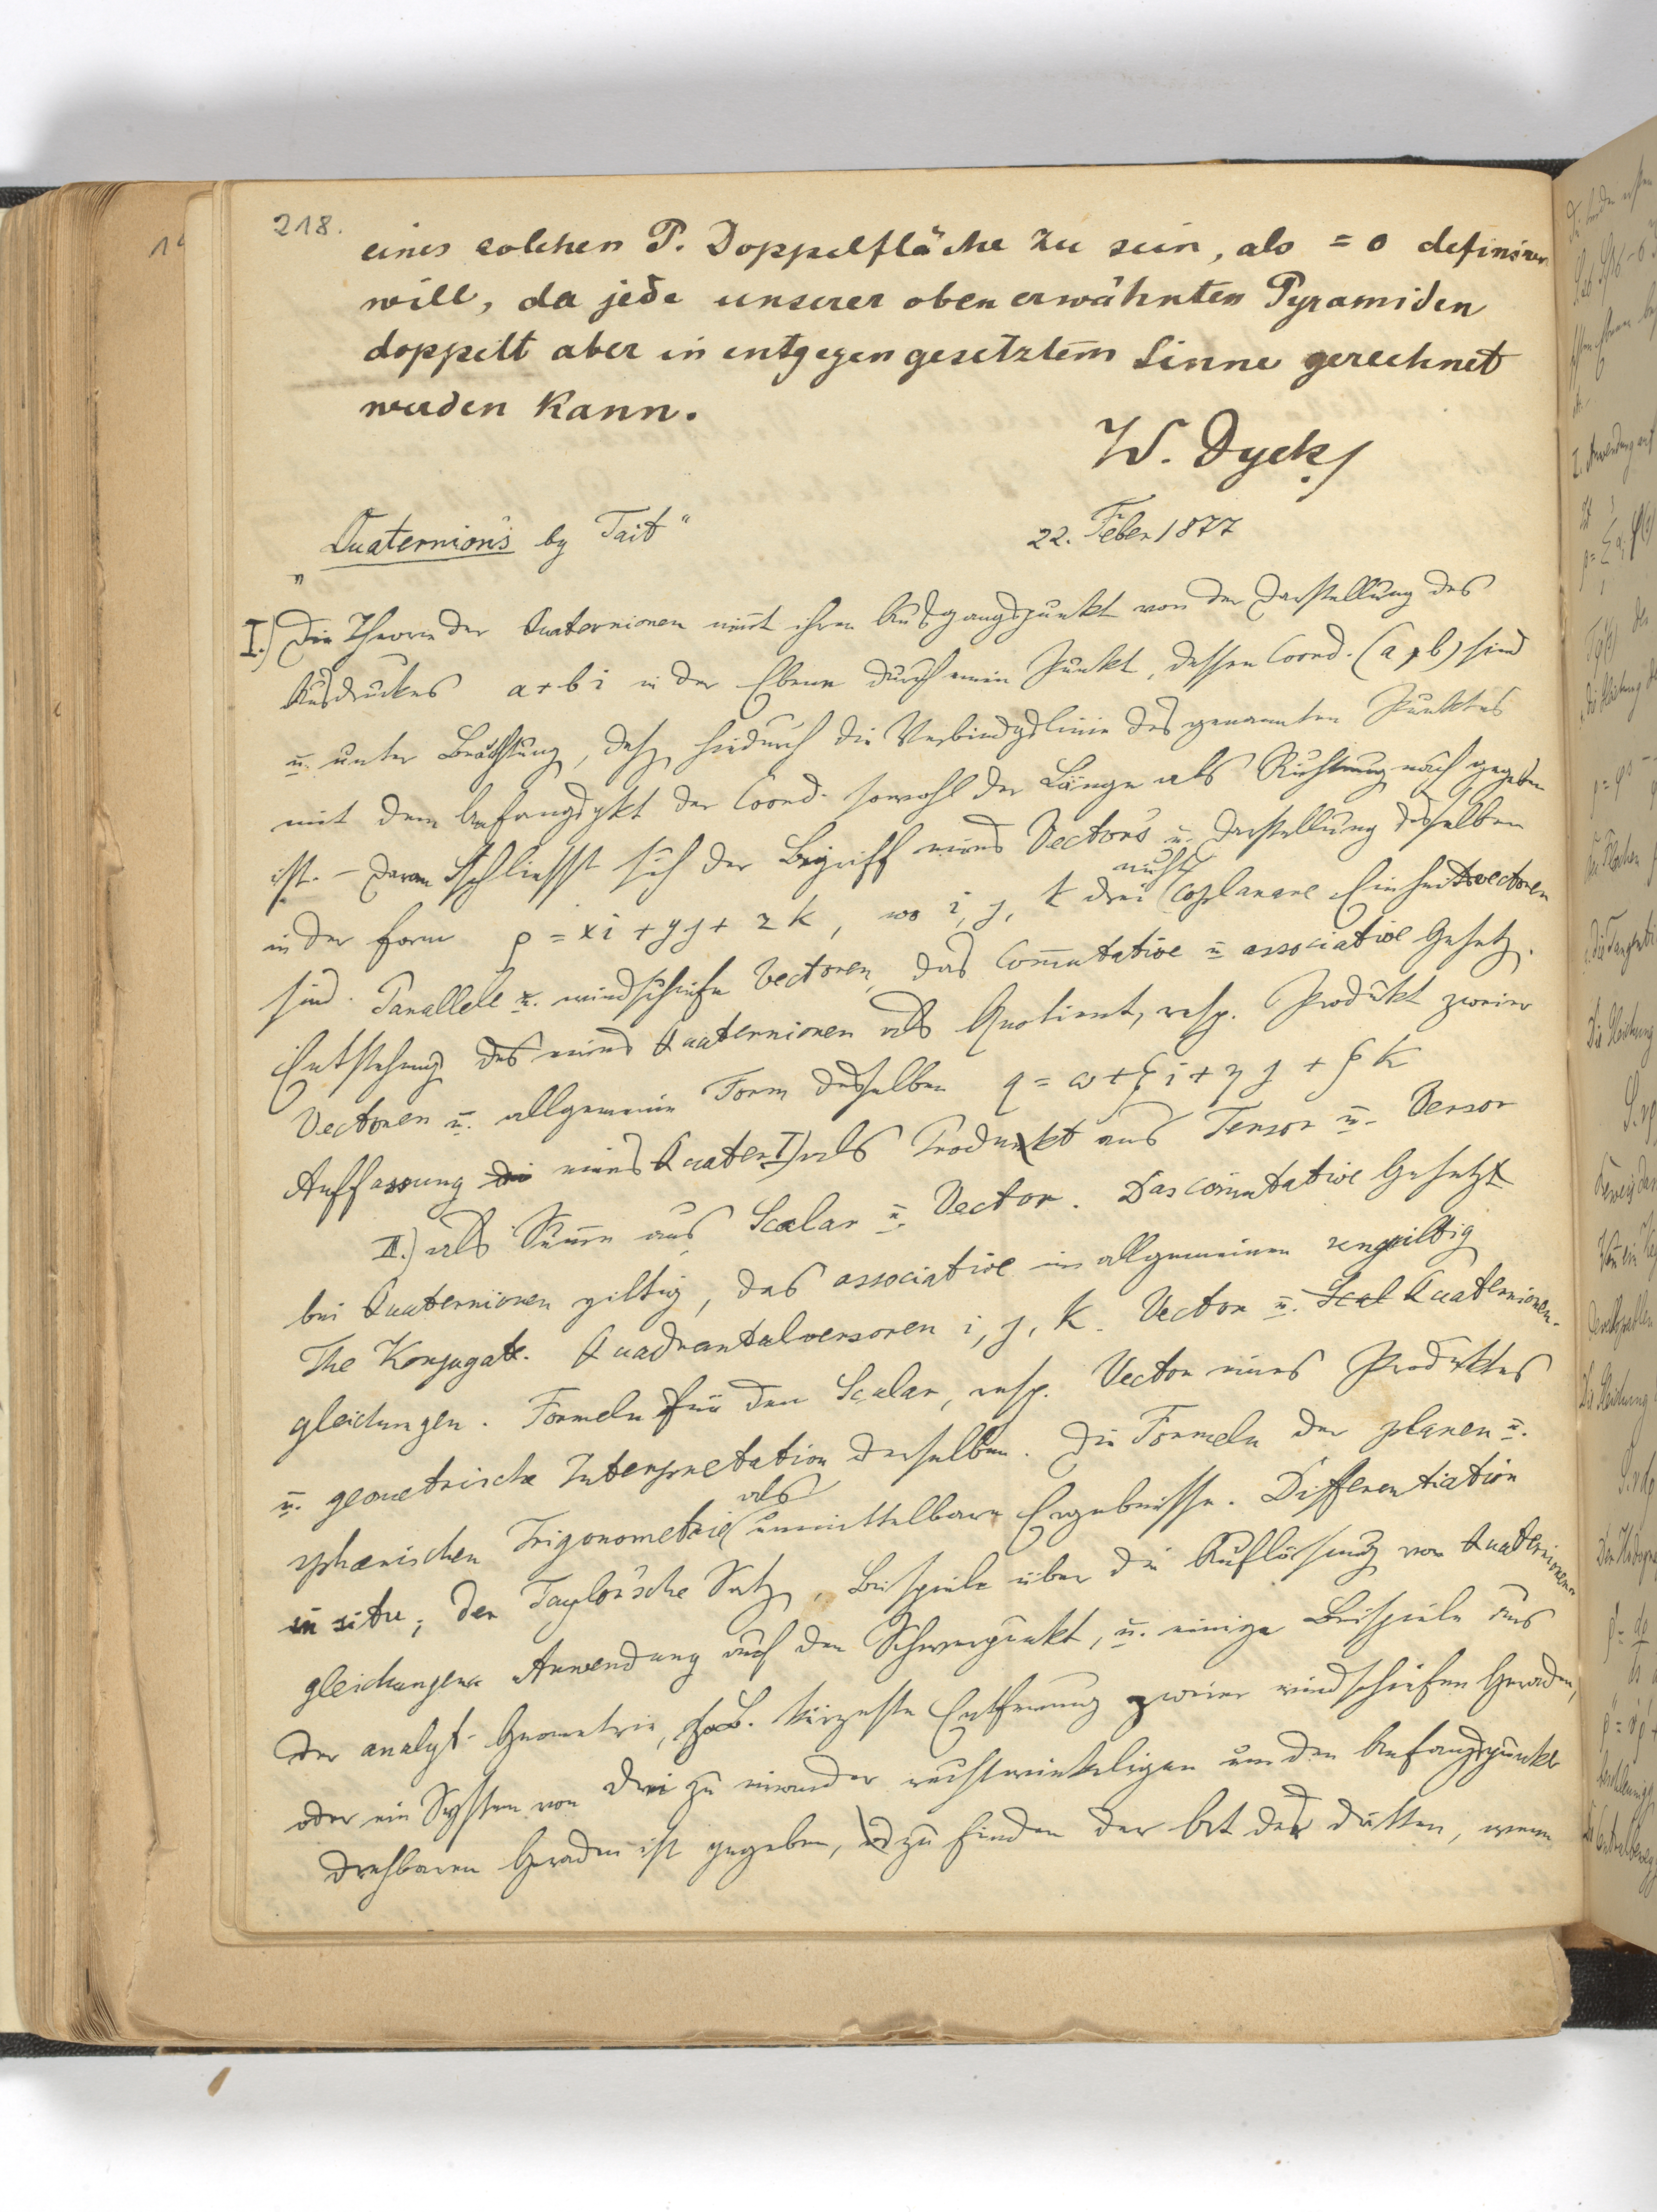 218.
eines solchen P. Doppelfläche zu sein, als = 0 definiren
will, da jede unserer oben erwähnten Pyramiden
doppelt aber in entgegengesetztem Sinne gerechnet
werden kann.
W. Dyck
„Quaternions by Tait“ 22. Feber 1877
I.) Die Theorie der Quaternionen nimt ihren Ausgangspunkt von der Darstellung des
Ausdruckes a+bi in der Ebene durch einen Punkt, dessen Coord. (a, b) sind
u. unter Beachtung, daß hiedurch die Verbindgslinie des genannten Punktes
mit dem Anfangspkt der Coord. sowohl der Länge als Richtung nach gegeben
ist. – Daran schliesst sich der Begriff eines Vectors u. Darstellung desselben
in der Form ρ = xi + yj + zk, wo i, j, k drei nicht coplanare Einheitsvectoren
sind. Parallele u. windschiefe Vectoren, das Com̄utative u. associative Gesetz.
Entstehung des eines Quaternionen als Quotient, resp. Produkt zweier
Vectoren u. allgemeine Form desselben q = ω + ξi + ηj + ζk
Auffassung die eines Quater I) als Produkt aus Tensor u. Versor
II.) als Summe aus Scalar u. Vector. Das com̄utative Gesetz
bei Quaternionen giltig, das associative im allgemeinen ungiltig
The Konjugate. Quadrantalversoren i, j, k. Vector u. Scal Quaternionen-
gleichungen. Formeln für den Scalar, resp. Vector eines Produktes
u. geometrische Interpretation derselben. Die Formeln der planen u.
sphärischen Trigonometrie als unmittelbare Ergebnisse. Differentiation
in situ; der Taylor'sche Satz, Beispiele über die Auflösung von Quaternionen-
gleichungen. Anwendung auf den Schwerpunkt, u. einige Beispiele aus
der analyt. Geometrie, z.B. kürzeste Entfernung zweier windschiefen Geraden,
oder ein System von drei zu einander rechtwinkeligen um den Anfangspunkt
drehbaren Geraden ist gegeben, zu finden der Ort der dritten, wenn